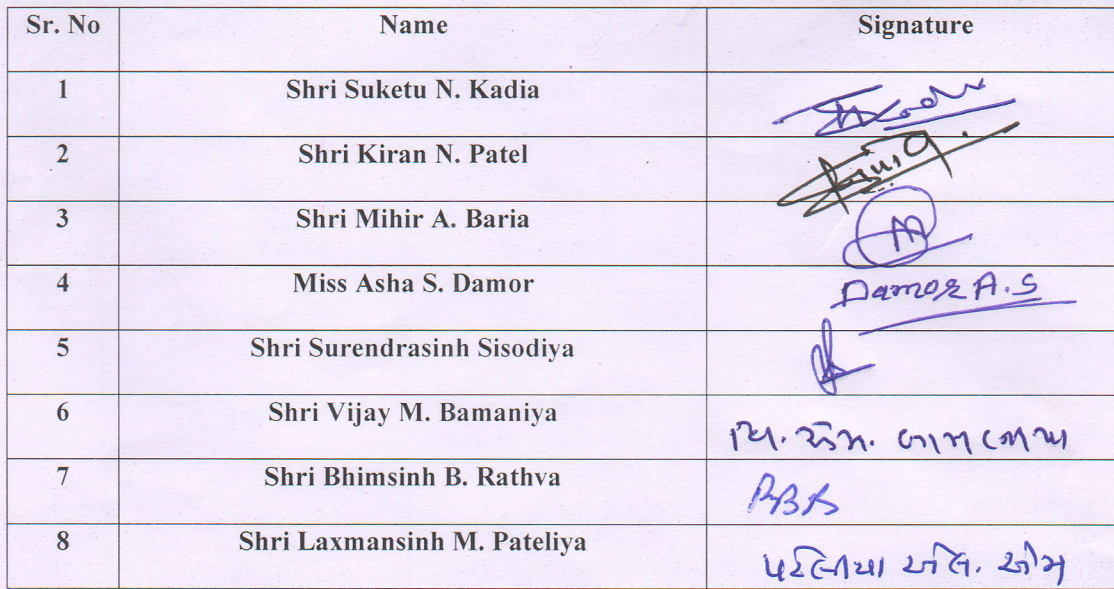 Sr. No Name Signature
1 Shri Suketu N. Kadia
2 Shri Kiran N. Patel
3 Shri Mihir A. Baria
4 Miss Asha S. Damor Damor A.S
5 Shri Surendrasinh Sisodiya
6 Shri Vijay M. Bamaniya વિ. એમ. બામણીયા
7 Shri Bhimsinh B. Rathva
8 Shri Laxmansinh M. Pateliya પટેલિયા એલ. એમ